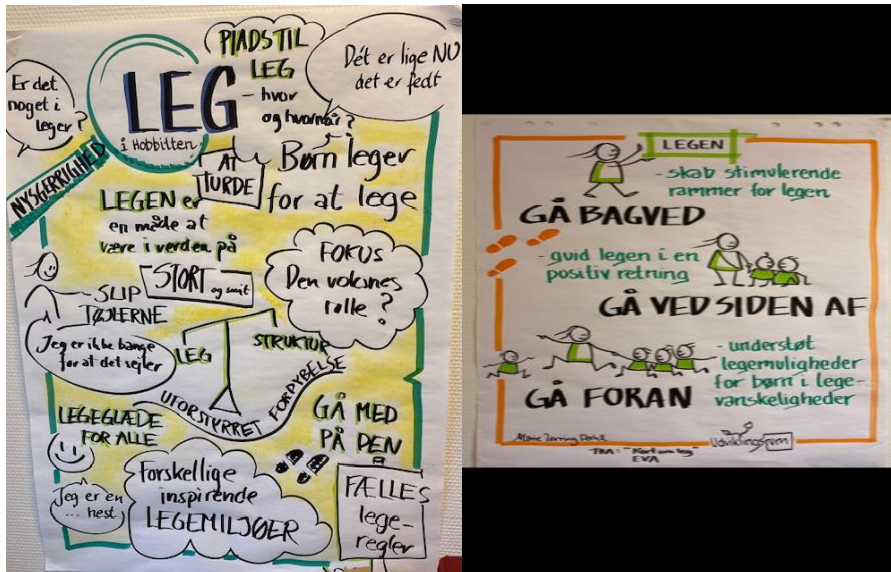 PLADS TIL
LEG
- hvor
og hvornår?
Dét er lige NU
det er fedt
Er det
noget i
leger?
LEG
i Hobbitten
NYSGERRIGHED
AT
TURDE
Børn leger
for at lege
LEGEN er
en måde at
være i verden på
STORT og småt
FOKUS
Den voksnes
rolle?
SLIP
TØJLERNE
Jeg er ikke bange
for at det sejler
LEG
STRUKTUR
UFORSTYRRET FORDYBELSE
LEGEGLÆDE
FOR ALLE
GÅ MED
PÅ DEN
Jeg er en
... hest
Forskellige
inspirerende
LEGEMILJØER
FÆLLES
lege-
regler
LEGEN
- skab stimulerende
rammer for legen
GÅ BAGVED
- guid legen i en
positiv retning
GÅ VED SIDEN AF
- understøt
legemuligheder
for børn i lege-
vanskeligheder
GÅ FORAN
Udviklingsrum
FRA: "Kort om leg"
EVA